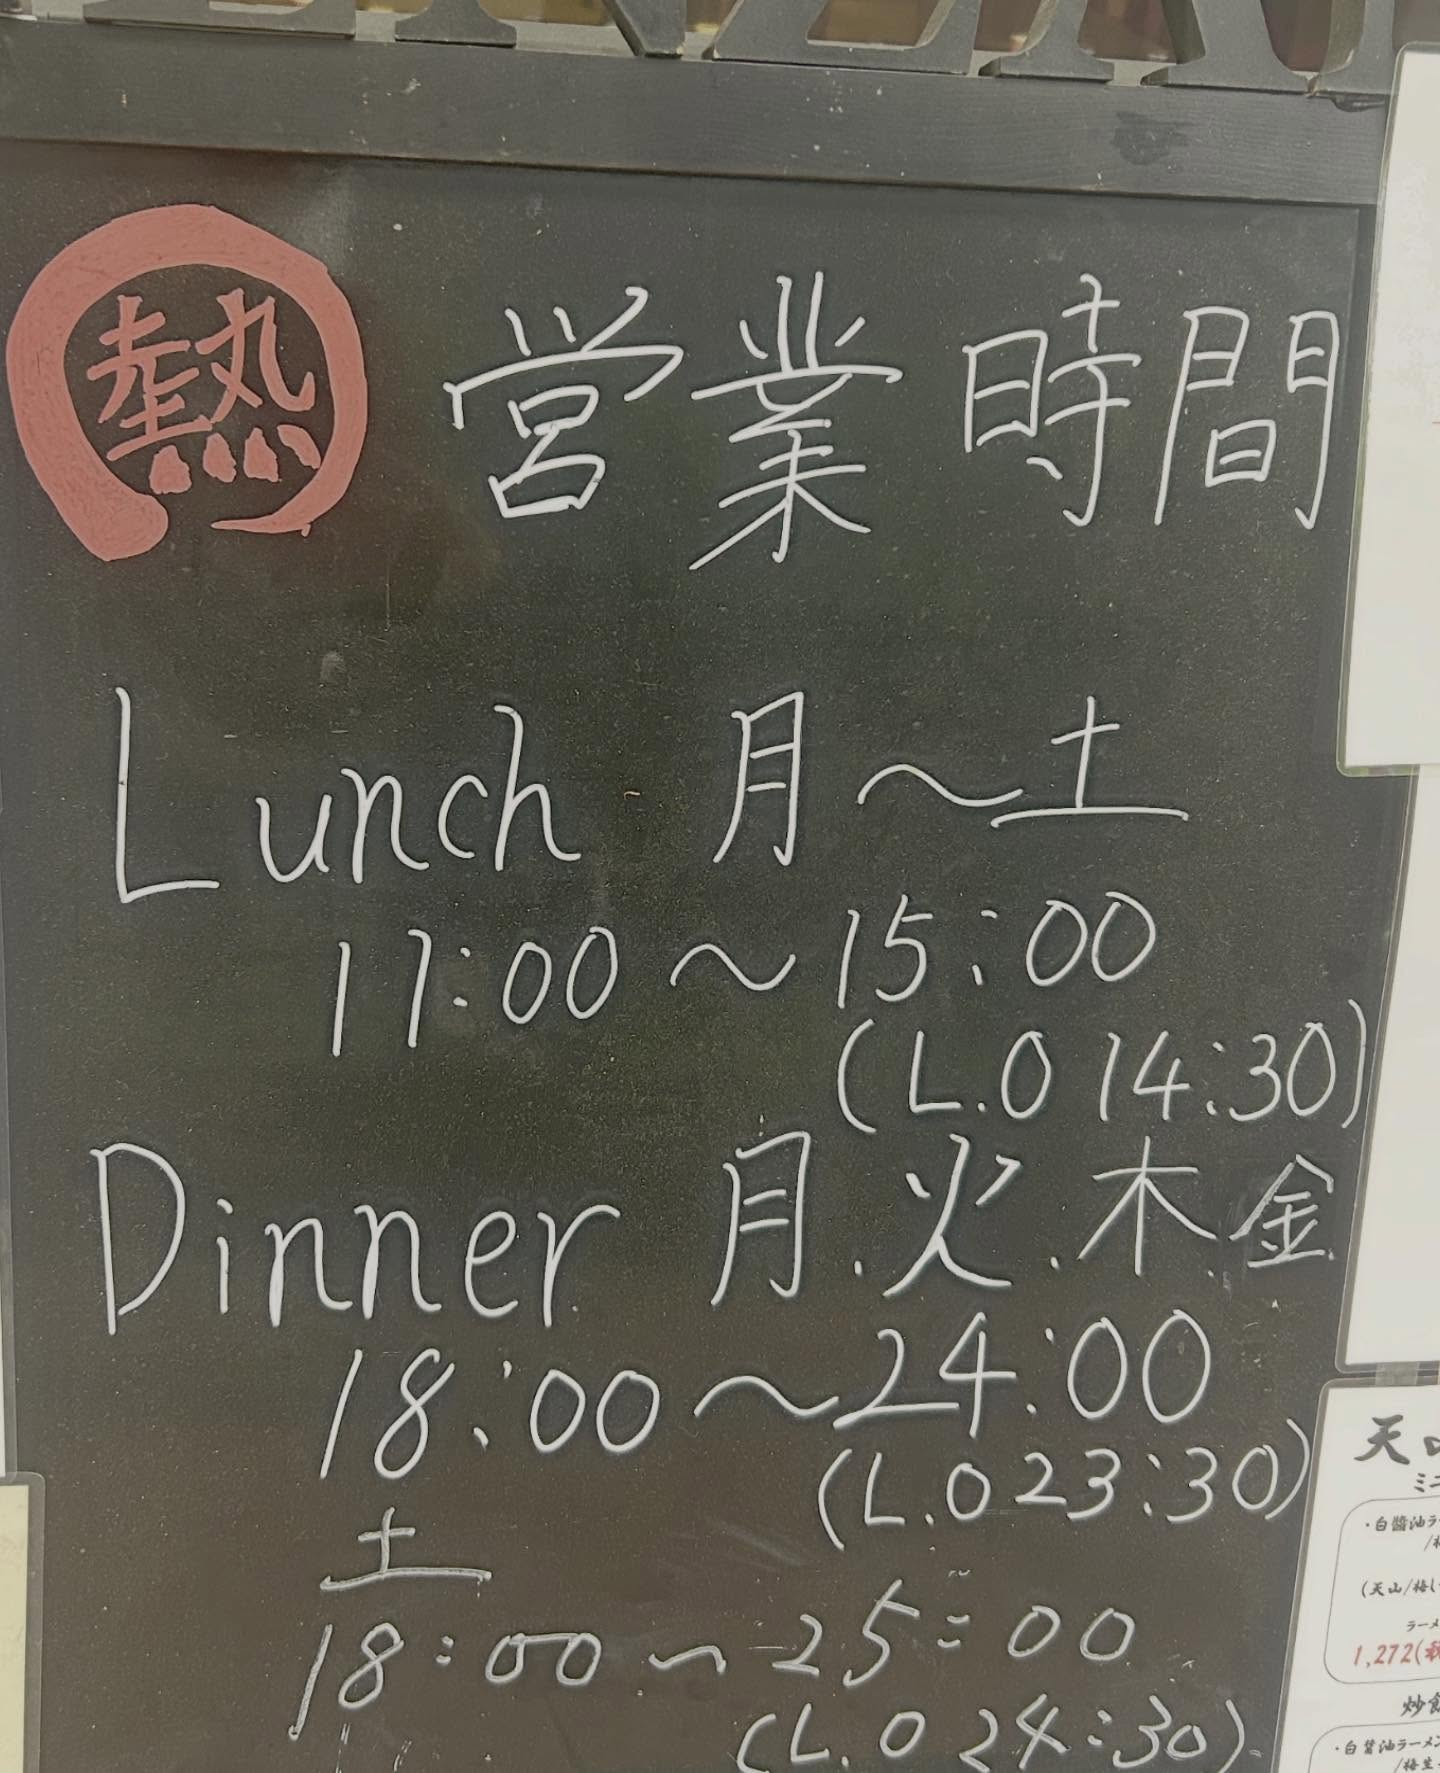 熱 営業時間
Lunch 月～土
11:00～15:00
(L.O 14:30)
Dinner 月.火.木.金
18:00～24:00
(L.O 23:30)
土
18:00～25:00
(L.O 24:30)
天山
ミニ
・白醤油ラー
(天山/梅し
ラーメ
1,272(
・白醤油ラーメン
/梅生